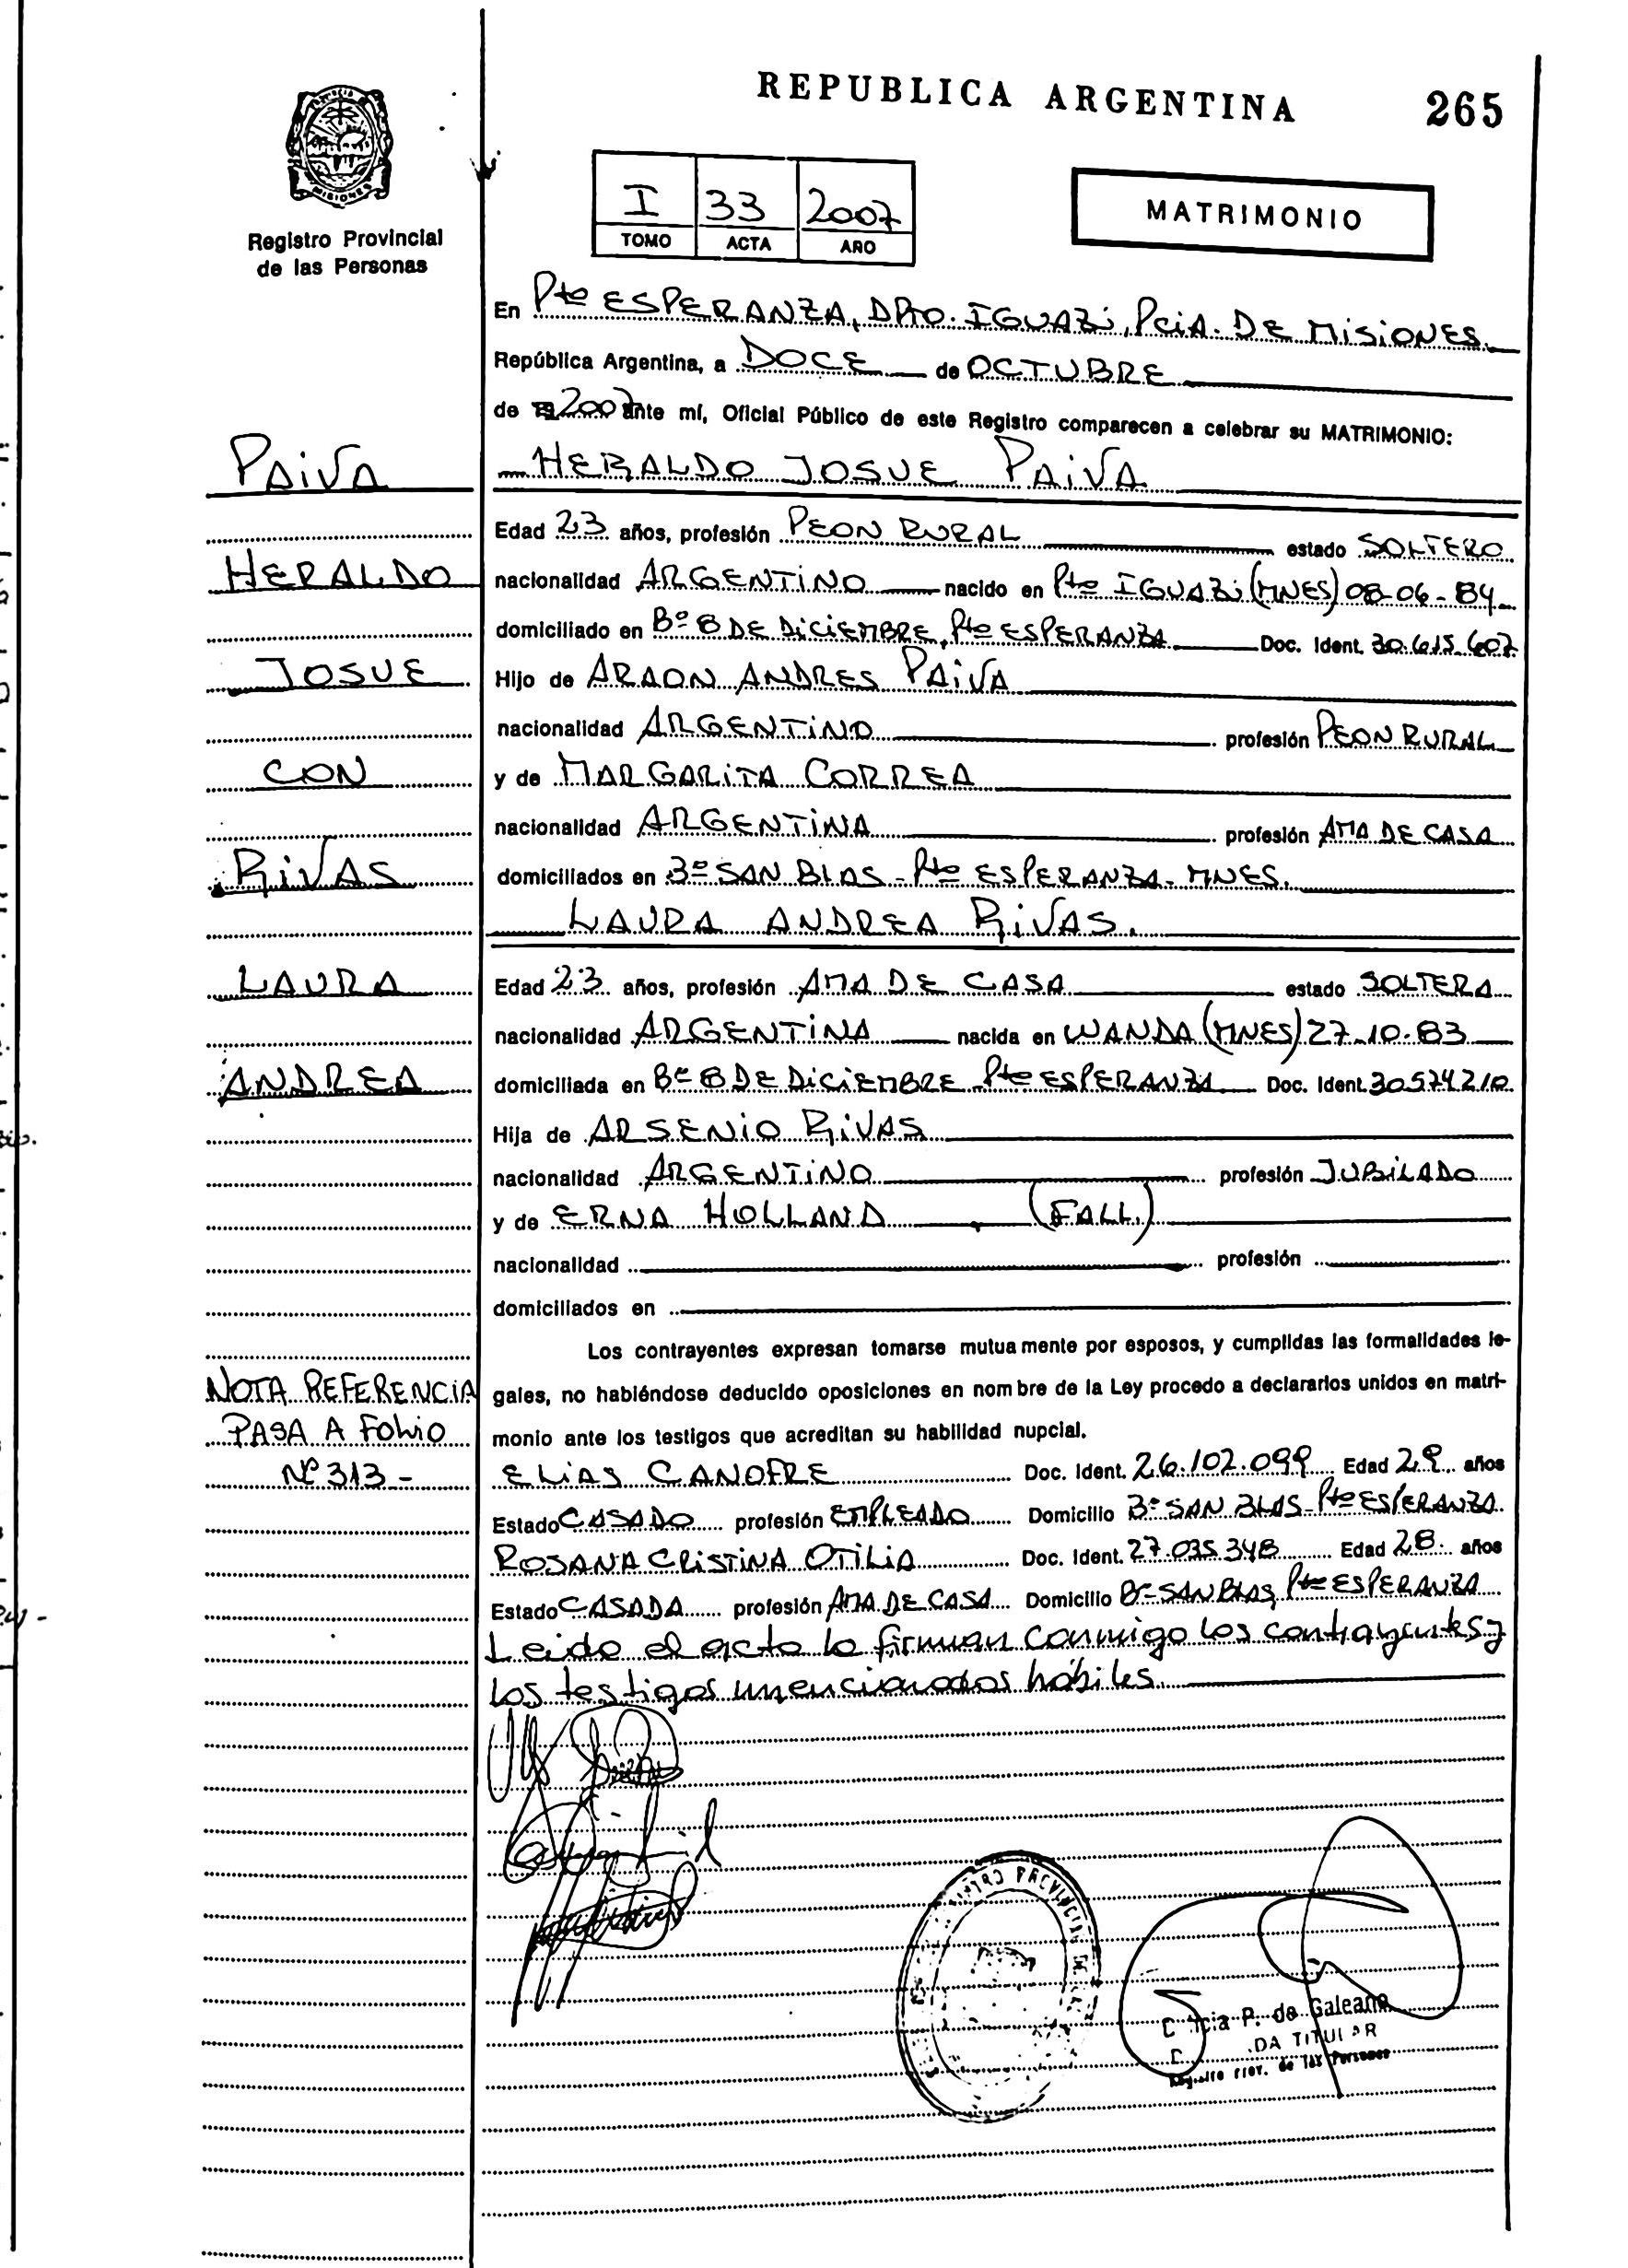 REPUBLICA ARGENTINA 265
MISIONES
Registro Provincial
de las Personas
I 33 2007
TOMO ACTA AÑO
MATRIMONIO
En Pto ESPERANZA, DPTO. IGUAZÚ, PCIA. DE MISIONES.
República Argentina, a DOCE de OCTUBRE
de 2007 ante mí, Oficial Público de este Registro comparecen a celebrar su MATRIMONIO:
PAIVA
HERALDO JOSUE PAIVA
Edad 23 años, profesión PEON RURAL estado SOLTERO
HERALDO
nacionalidad ARGENTINO nacido en Pto IGUAZÚ (MNES) 08-06-84
domiciliado en Bº 8 DE DICIEMBRE, Pto ESPERANZA Doc. Ident. 30.615.607
JOSUE
Hijo de ARAON ANDRES PAIVA
nacionalidad ARGENTINO profesión PEON RURAL
CON
y de MARGARITA CORREA
nacionalidad ARGENTINA profesión AMA DE CASA
RIVAS
domiciliados en Bº SAN BLAS - Pto ESPERANZA - MNES.
LAURA ANDREA RIVAS.
LAURA
Edad 23 años, profesión AMA DE CASA estado SOLTERA
nacionalidad ARGENTINA nacida en WANDA (MNES) 27-10-83
ANDREA
domiciliada en Bº 8 DE DICIEMBRE Pto ESPERANZA Doc. Ident. 30574210
Hija de ARSENIO RIVAS
nacionalidad ARGENTINO profesión JUBILADO
y de ERNA HOLLAND (FALL.)
nacionalidad profesión
domiciliados en
Los contrayentes expresan tomarse mutuamente por esposos, y cumplidas las formalidades le-
NOTA REFERENCIA
gales, no habiéndose deducido oposiciones en nombre de la Ley procedo a declararlos unidos en matri-
PASA A FOLIO
monio ante los testigos que acreditan su habilidad nupcial.
Nº 313-
ELIAS CANOFRE Doc. Ident. 26.102.099 Edad 29 años
Estado CASADO profesión EMPLEADO Domicilio Bº SAN BLAS - Pto ESPERANZA
ROSANA CRISTINA OTILIA Doc. Ident. 27.035.348 Edad 28 años
Estado CASADA profesión AMA DE CASA Domicilio Bº SAN BLAS, Pto ESPERANZA
Leido el acta la firman conmigo los contrayentes y
los testigos mencionados hábiles
P. de Galeano
TITULAR
Registro Prov. de las Personas